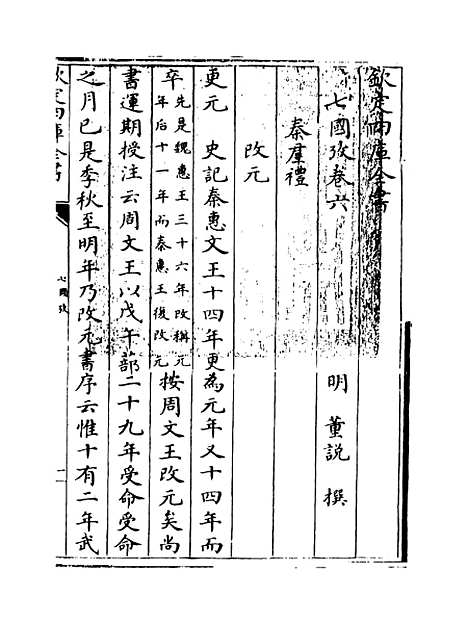 欽定四庫全書
七國攷卷六
明 董説 撰
秦羣禮
改元
更元 史記秦惠文王十四年更為元年又十四年而
卒先是魏惠王三十六年改稱元
年后十一年而秦惠王復改元按周文王改元矣尚
書運期授注云周文王以戊午蔀二十九年受命受命
之月已是季秋至明年乃改元書序云惟十有二年武
欽定四庫全書
七國攷